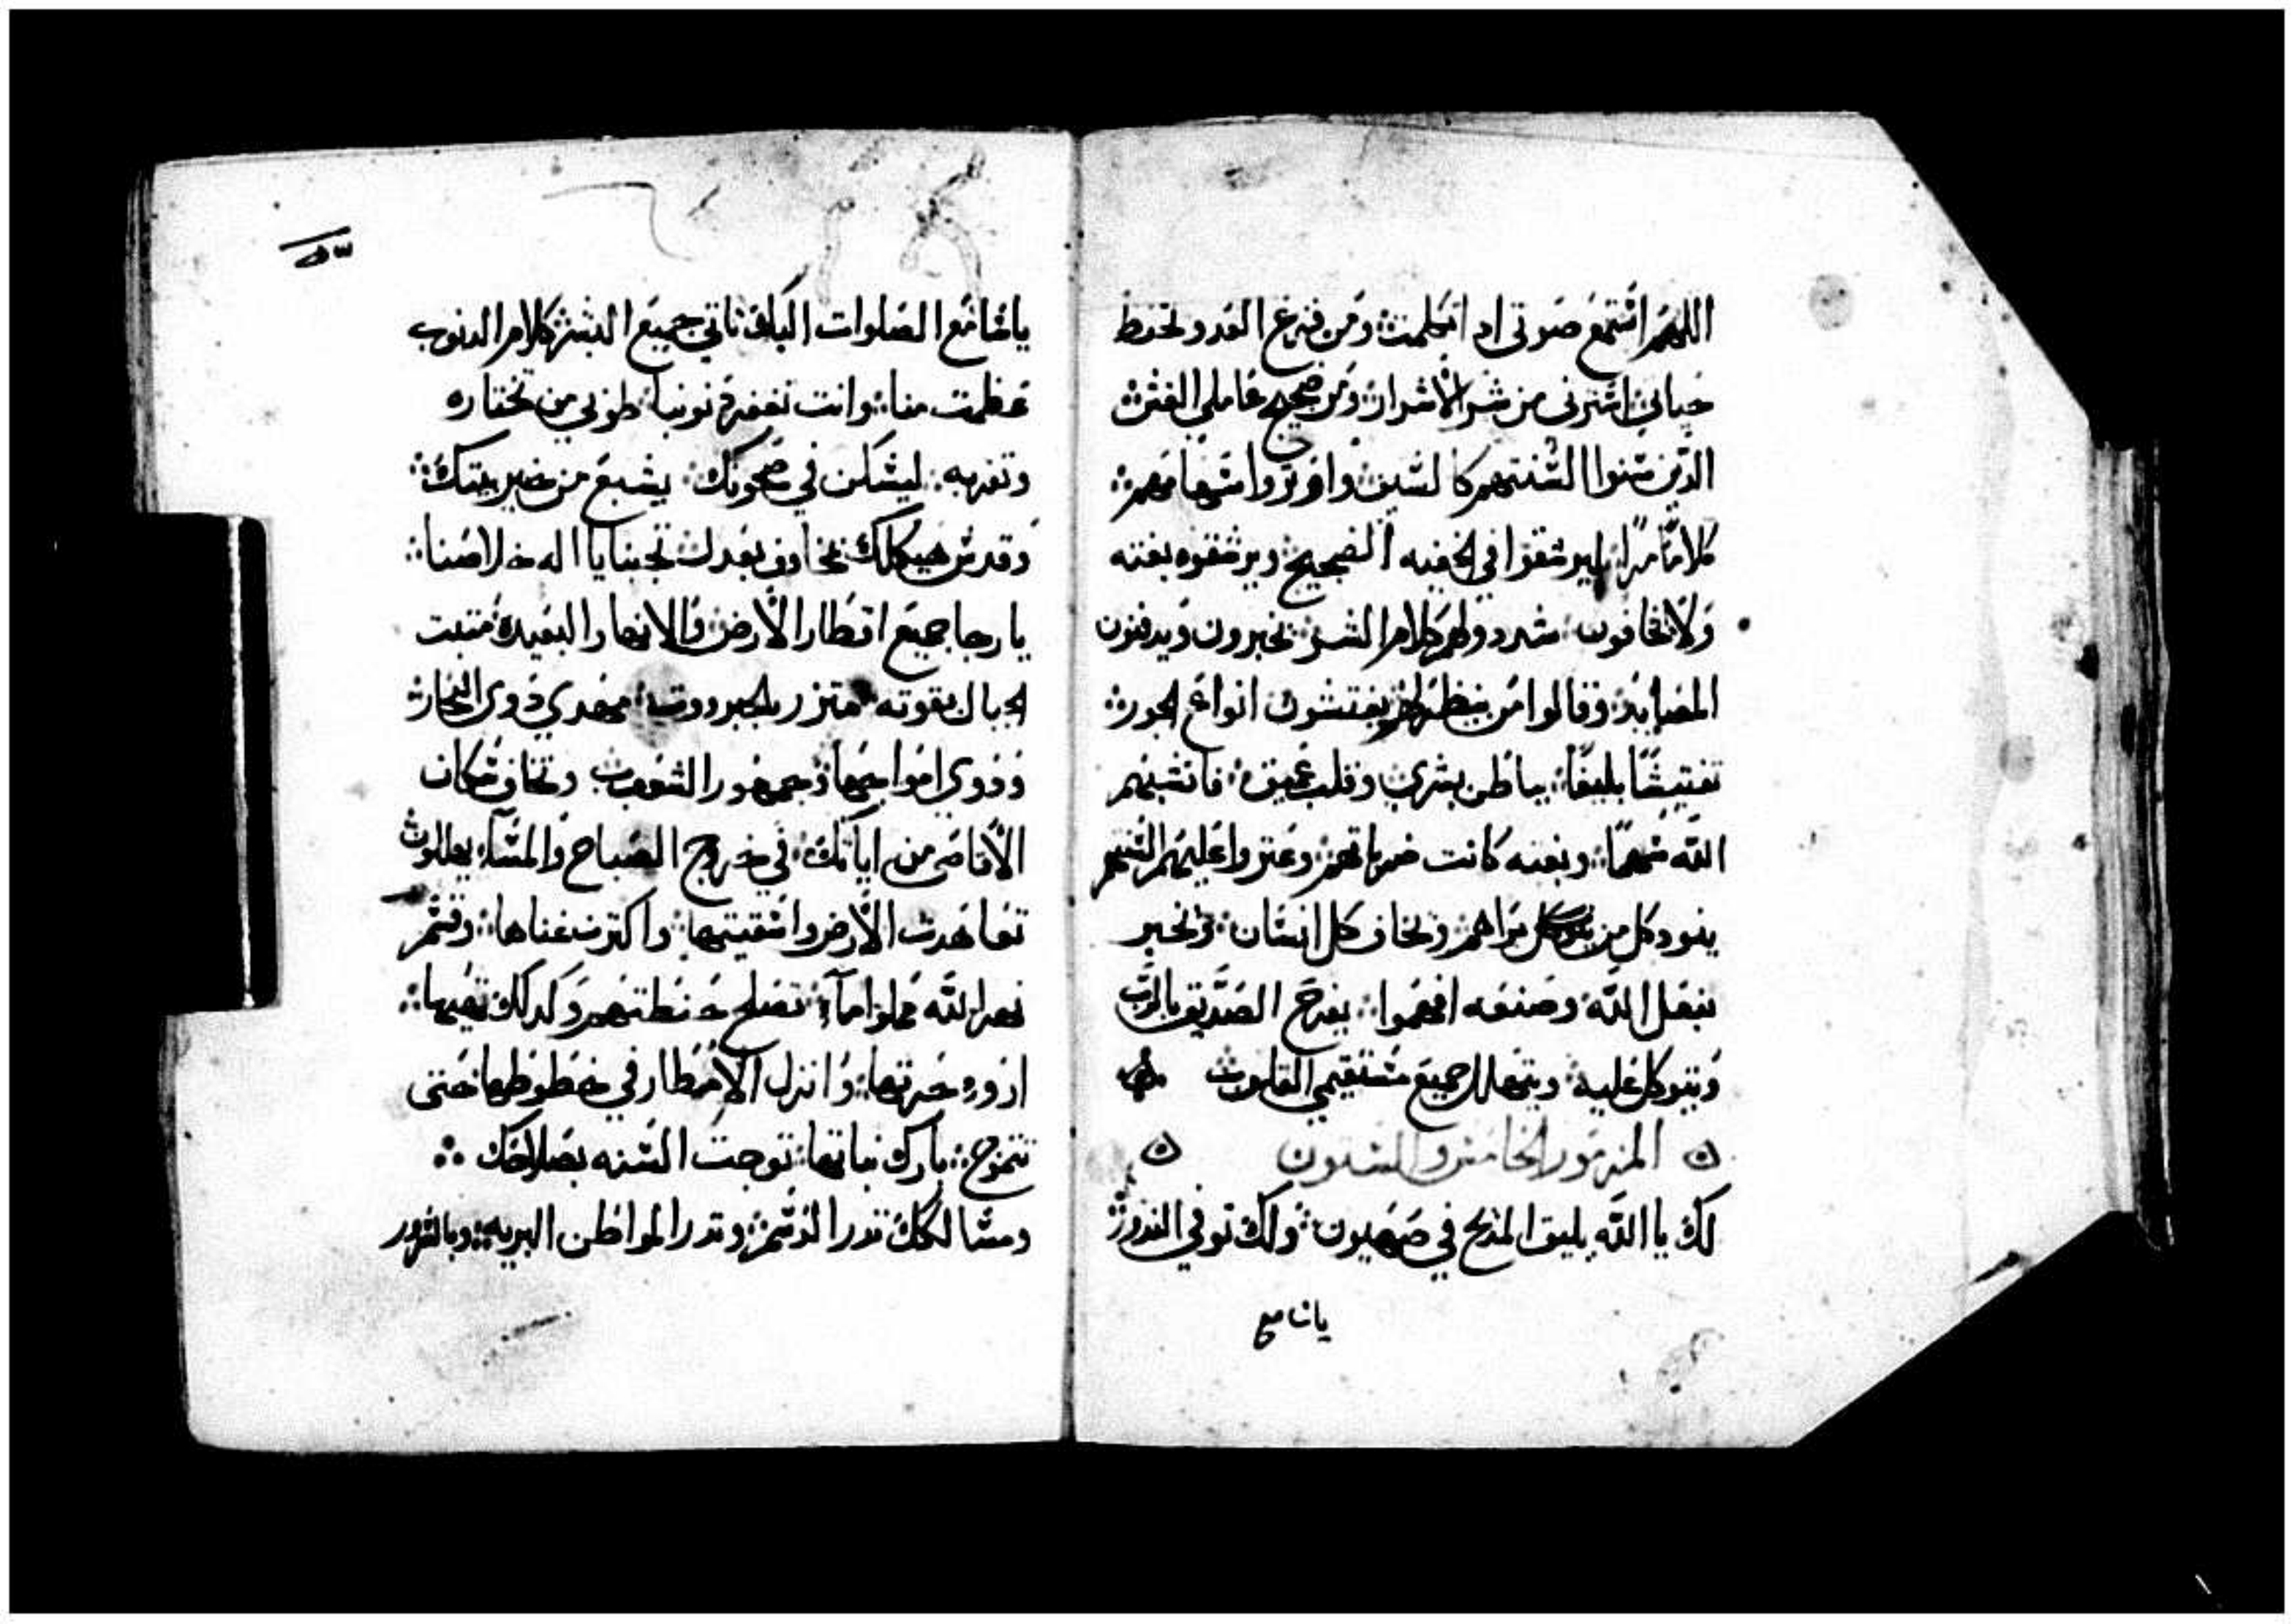 اللهم استمع صوتي اد اتكلمت ومن فزع العدو تحفظ
حياتي استرني من شر الاشرار ومن ضجيج عاملي الغش
الذين سنوا السنتهم كالسيف واوتروا سهامهم
كلامًا مرًا ليرشقوا في الخفيه الصحيح ويرشقوه بغته
ولا يخافون شددوا لهم كلام الشر يخبرون ويدفنون
المصايد وقالوا من ينظرهم يفتشون انواع الجور
تفتيشًا بليغًا بباطن بشري وقلب عميق فانشبهم
الله سهمًا وبغته كانت ضرباتهم وعتروا عليهم السنتهم
ينود كل من يراهم ويخاف كل انسان ويخبر
بفعل الله وصنعه افهموا يفرح الصديق بالرب
ويتوكل عليه ويتهلل جميع مستقيمي القلوب
المزمور الخامس والستون
لك يا الله يليق المديح في صهيون ولك توفي الندور
ياسامع
ياسامع الصلوات اليك تاتي جميع البشر كلام الدنوب
عظمت منا وانت تغفر دنوبنا طوبي من تختاره
وتقربه ليسكن في صحونك يشبع من خير بيتك
وقدس هيكلك مخاوف بعدلك تجبنا يا اله خلاصنا
يا رجا جميع اقطار الارض والانهار البعيده متبت
الجبال بقوته متزر بالجبرووت مهدي دوي البحار
ودوي امواجها وجمهور الشعوب وتخاف سكان
الاقاصي من اياتك في خروج الصباح والمسآ يهللون
تعاهدت الارض واسقيتها واكترت غناها وقسم
نهر الله مملوا مآ تصلح حنطتهم وكدلك تهيها
ازوي حرتها وانزل الامطار في خطوطها حتى
تتموج بارك نباتها توجت السنه بصلاحك
ومسالكك تدر الدسم وتدر المواطن البريه وبالسرور